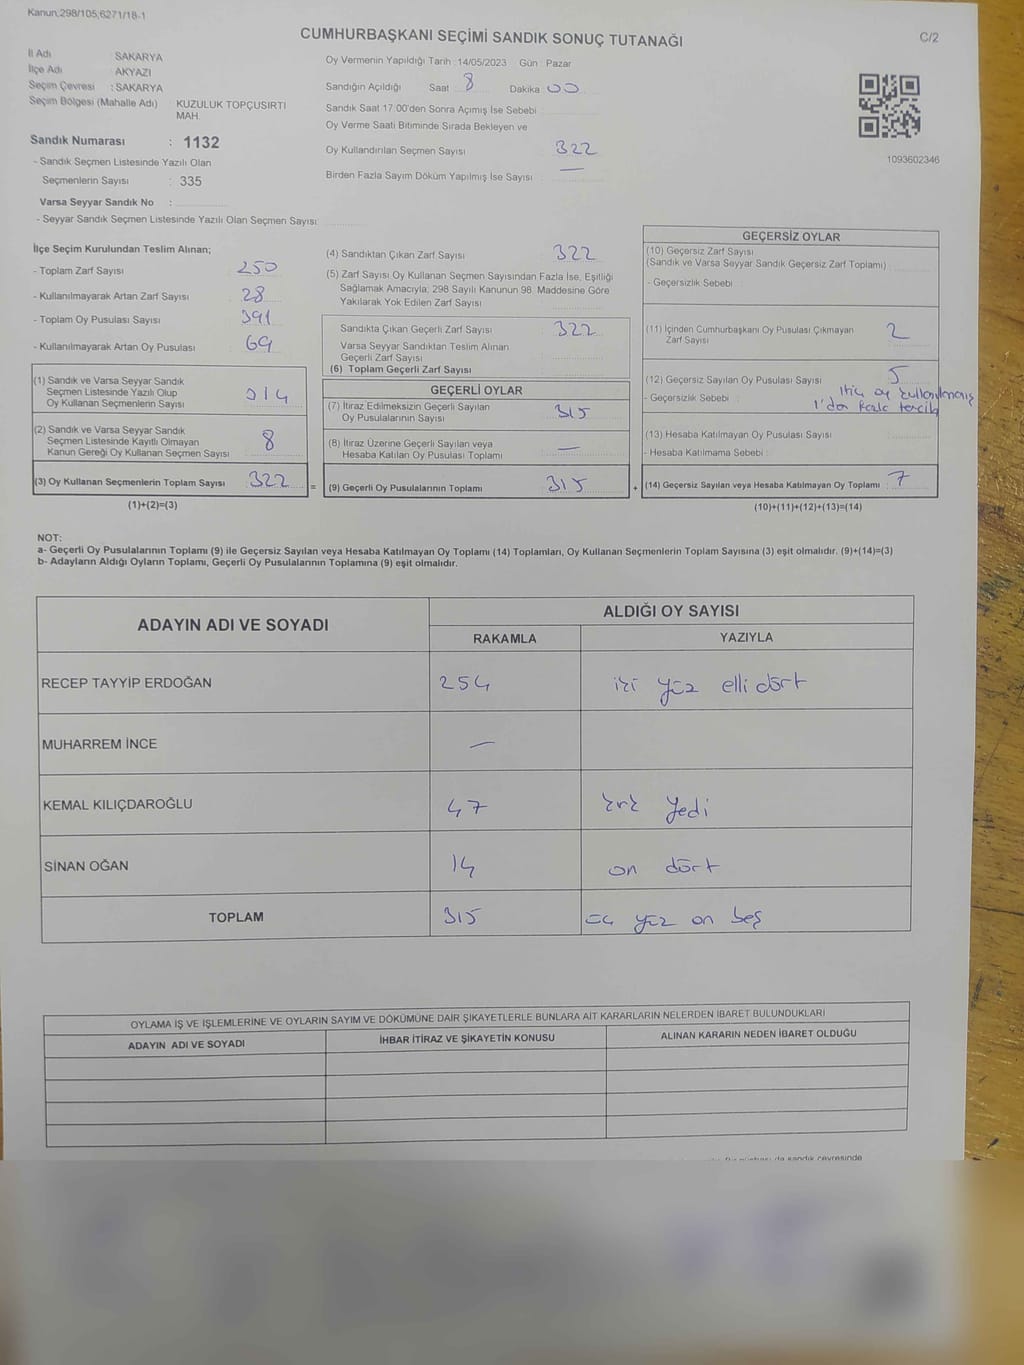 Kanun;298/105;6271/18-1
CUMHURBAŞKANI SEÇİMİ SANDIK SONUÇ TUTANAĞI
C/2
İl Adı SAKARYA
İlçe Adı AKYAZI
Seçim Çevresi : SAKARYA
Seçim Bölgesi (Mahalle Adı) KUZULUK TOPÇUSIRTI MAH.
Sandık Numarası : 1132
- Sandık Seçmen Listesinde Yazılı Olan
Seçmenlerin Sayısı : 335
Varsa Seyyar Sandık No :
- Seyyar Sandık Seçmen Listesinde Yazılı Olan Seçmen Sayısı:
Oy Vermenin Yapıldığı Tarih :14/05/2023 Gün : Pazar
Sandığın Açıldığı Saat 8 Dakika 00
Sandık Saat 17:00'den Sonra Açımış İse Sebebi :
Oy Verme Saati Bitiminde Sırada Bekleyen ve
Oy Kullandırılan Seçmen Sayısı 322
Birden Fazla Sayım Döküm Yapılmış İse Sayısı : —
1093602346
İlçe Seçim Kurulundan Teslim Alınan;
- Toplam Zarf Sayısı 250
- Kullanılmayarak Artan Zarf Sayısı 28
- Toplam Oy Pusulası Sayısı 391
- Kullanılmayarak Artan Oy Pusulası 69
(1) Sandık ve Varsa Seyyar Sandık
Seçmen Listesinde Yazılı Olup
Oy Kullanan Seçmenlerin Sayısı 314
(2) Sandık ve Varsa Seyyar Sandık
Seçmen Listesinde Kayıtlı Olmayan
Kanun Gereği Oy Kullanan Seçmen Sayısı 8
(3) Oy Kullanan Seçmenlerin Toplam Sayısı 322
(1)+(2)=(3)
(4) Sandıktan Çıkan Zarf Sayısı 322
(5) Zarf Sayısı Oy Kullanan Seçmen Sayısından Fazla İse, Eşitliği
Sağlamak Amacıyla; 298 Sayılı Kanunun 98. Maddesine Göre
Yakılarak Yok Edilen Zarf Sayısı
Sandıkta Çıkan Geçerli Zarf Sayısı 322
Varsa Seyyar Sandıktan Teslim Alınan
Geçerli Zarf Sayısı
(6) Toplam Geçerli Zarf Sayısı
GEÇERLİ OYLAR
(7) İtiraz Edilmeksizin Geçerli Sayılan
Oy Pusulalarının Sayısı 315
(8) İtiraz Üzerine Geçerli Sayılan veya
Hesaba Katılan Oy Pusulası Toplamı —
= (9) Geçerli Oy Pusulalarının Toplamı 315
GEÇERSİZ OYLAR
(10) Geçersiz Zarf Sayısı
(Sandık ve Varsa Seyyar Sandık Geçersiz Zarf Toplamı)
- Geçersizlik Sebebi :
(11) İçinden Cumhurbaşkanı Oy Pusulası Çıkmayan
Zarf Sayısı 2
(12) Geçersiz Sayılan Oy Pusulası Sayısı 5
- Geçersizlik Sebebi : Hiç oy kullanılmamış
1'den fazla tercih
(13) Hesaba Katılmayan Oy Pusulası Sayısı
- Hesaba Katılmama Sebebi :
+ (14) Geçersiz Sayılan veya Hesaba Katılmayan Oy Toplamı : 7
(10)+(11)+(12)+(13)=(14)
NOT:
a- Geçerli Oy Pusulalarının Toplamı (9) ile Geçersiz Sayılan veya Hesaba Katılmayan Oy Toplamı (14) Toplamları, Oy Kullanan Seçmenlerin Toplam Sayısına (3) eşit olmalıdır. (9)+(14)=(3)
b- Adayların Aldığı Oyların Toplamı, Geçerli Oy Pusulalarının Toplamına (9) eşit olmalıdır.
ADAYIN ADI VE SOYADI
ALDIĞI OY SAYISI
RAKAMLA YAZIYLA
RECEP TAYYİP ERDOĞAN 254 iki yüz elli dört
MUHARREM İNCE —
KEMAL KILIÇDAROĞLU 47 kırk yedi
SİNAN OĞAN 14 on dört
TOPLAM 315 üç yüz on beş
OYLAMA İŞ VE İŞLEMLERİNE VE OYLARIN SAYIM VE DÖKÜMÜNE DAİR ŞİKAYETLERLE BUNLARA AİT KARARLARIN NELERDEN İBARET BULUNDUKLARI
ADAYIN ADI VE SOYADI İHBAR İTİRAZ VE ŞİKAYETİN KONUSU ALINAN KARARIN NEDEN İBARET OLDUĞU